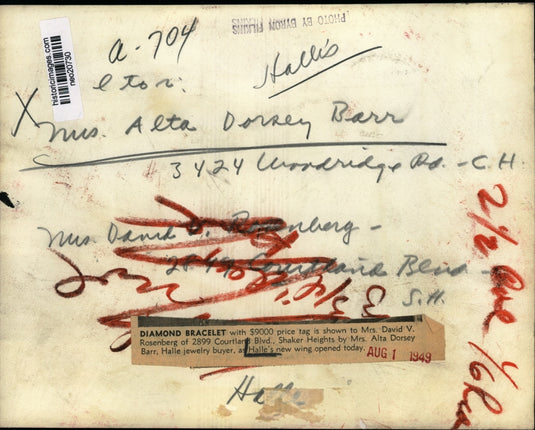 PHOTO BY BYRON FILKINS
historicimages.com
neo20730
a-704
Halle's
l to r.
X Mrs. Alta Dorsey Barr
3424 Woodridge Rd. - C.H.
Mrs. David Rosenberg -
Courtland Blvd -
S.H.
2 1/2
DIAMOND BRACELET with $9000 price tag is shown to Mrs. David V.
Rosenberg of 2899 Courtland Blvd., Shaker Heights by Mrs. Alta Dorsey
Barr, Halle jewelry buyer, as Halle's new wing opened today.
AUG 1 1949
Halle